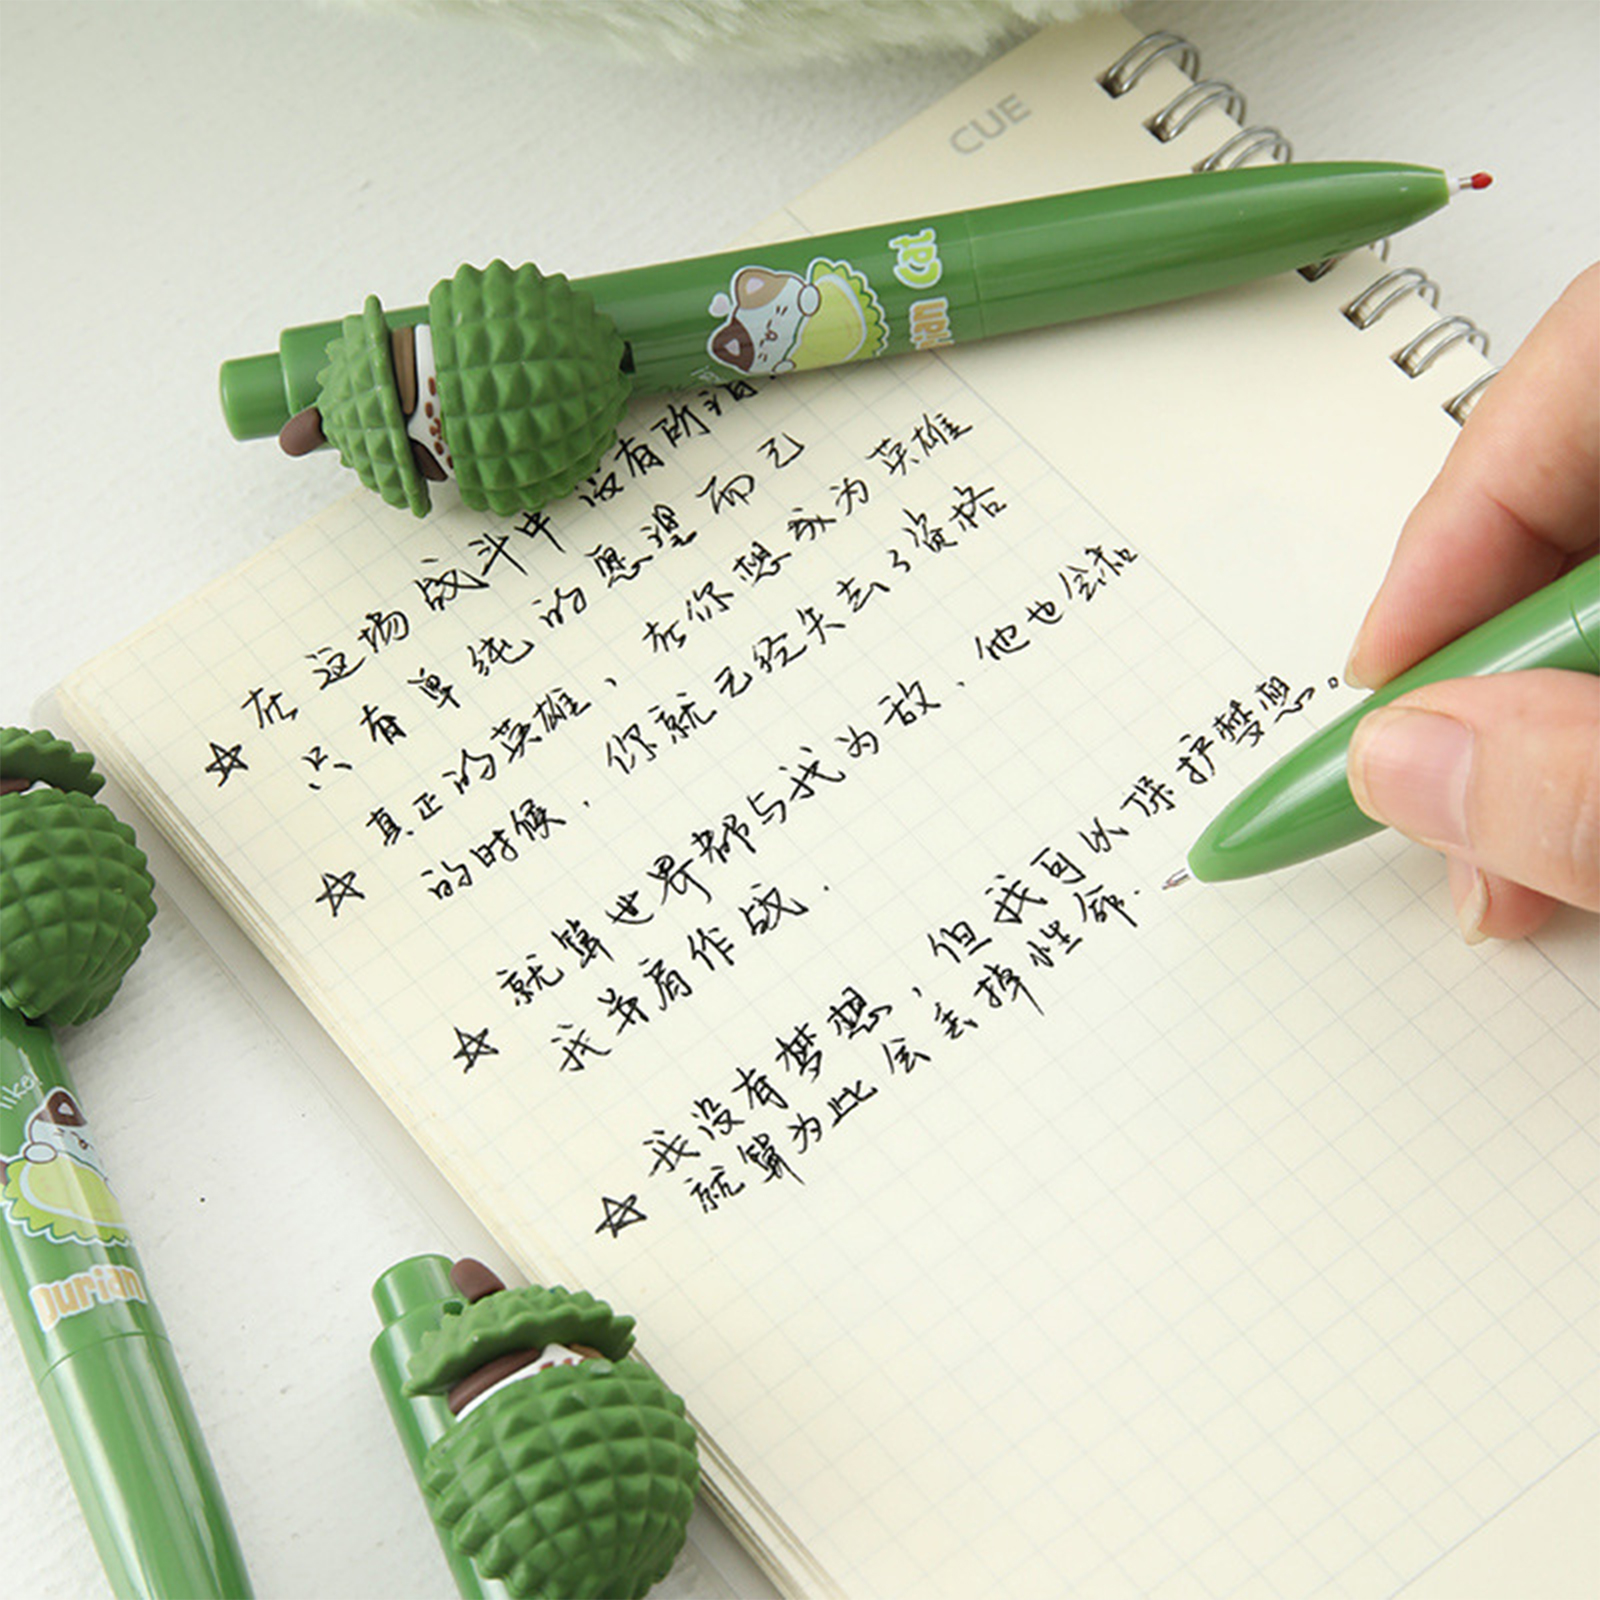 CUE
cat
urian
在这场战斗中没有所谓
只有单纯的愿望而已
真正的英雄、在你想成为英雄
的时候,你就已经失去了资格
就算世界都与我为敌、他也会和
我并肩作战.
我没有梦想,但我可以保护梦想。
就算为此会丢掉性命.
like
Durian